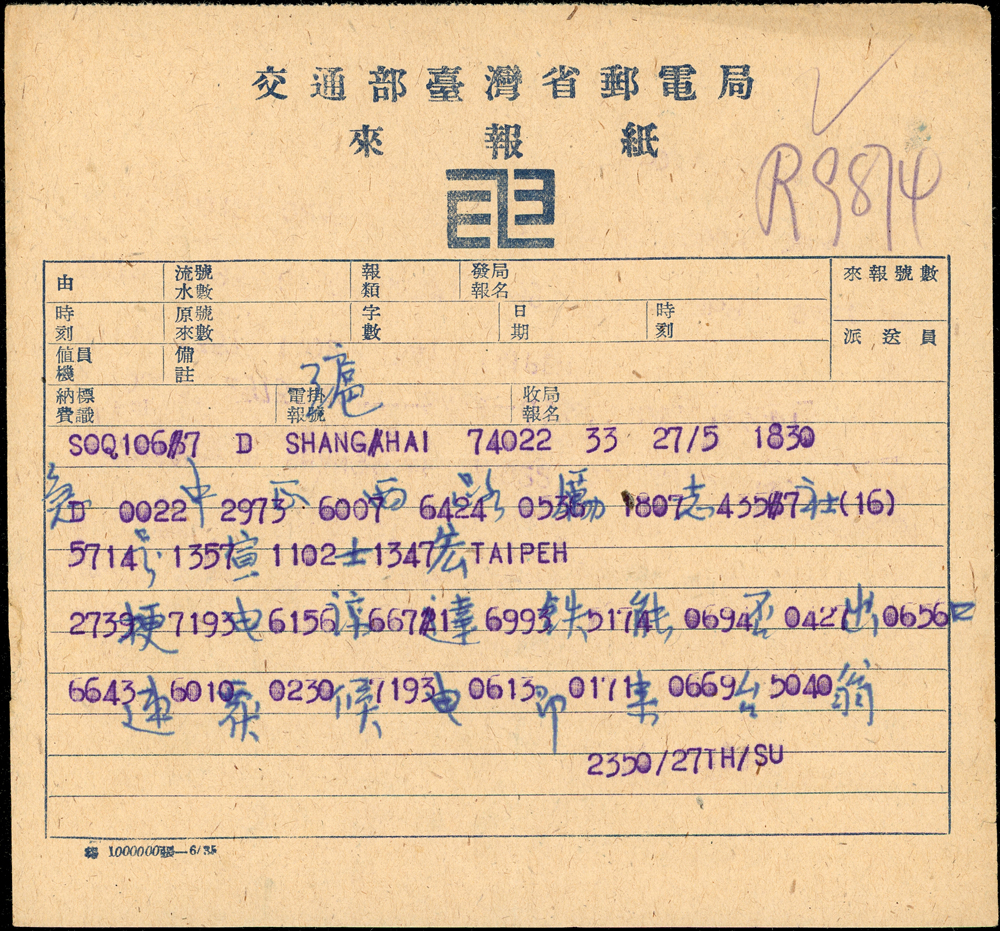 交通部臺灣省郵電局
來報紙
R9874
由 流水號數 報類 發報局名 來報號數
時刻 原來號數 字數 日期 時刻
派送員
值機員 備註
滬
納費標識 電報掛號 收報局名
SOQ106/87 D SHANG/HAI 74022 33 27/5 1830
急 D 0022 中 2973 正 6007 西 6424 路 0536 勵 1807 志 4357 社 (16)
5714 1357 萱 1102 士 1347 宏 TAIPEH
2739 梗 7193 电 6156 諒 6671 達 6993 鉄 5174 能 0694 否 0427 出 0656 口
6643 速 6010 0230 候 7193 电 0613 即 0171 来 0669 台 5040 翁
2350/27TH/SU
1000000張—6/35